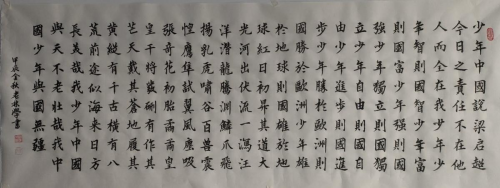 少年中國說梁啟超
今日之責任不在他
人而全在我少年少
年智則國智少年富
則國富少年強則國
強少年獨立則國獨
立少年自由則國自
由少年進步則國進
步少年勝於歐洲則
國勝於歐洲少年雄
於地球則國雄於地
球紅日初昇其道大
光河出伏流一瀉汪
洋潛龍騰淵鱗爪飛
揚乳虎嘯谷百獸震
惶鷹隼試翼風塵吸
張奇花初胎矞矞皇
皇干將發硎有作其
芒天戴其蒼地履其
黃縱有千古橫有八
荒前途似海來日方
長美哉我少年中國
與天不老壯哉我中
國少年與國無疆
甲辰金秋書